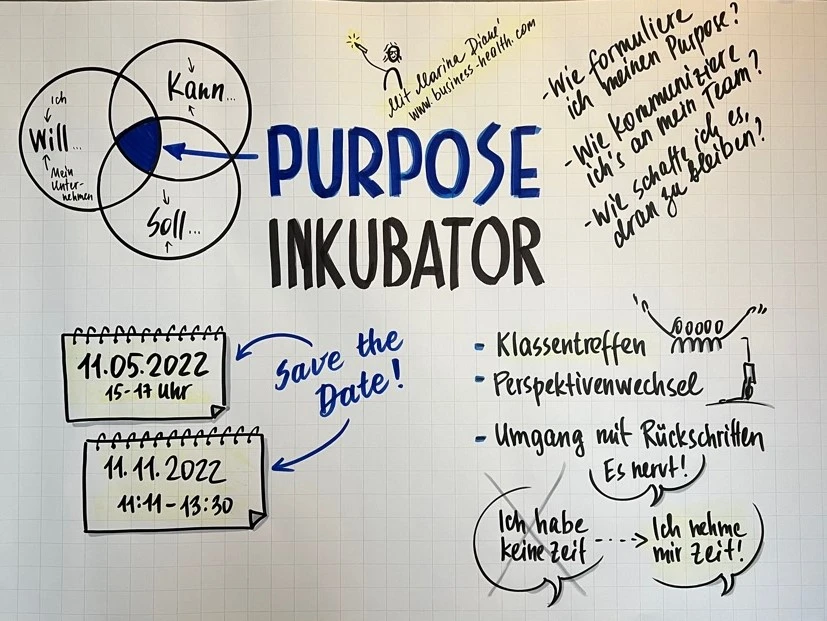 Kann...
Ich
Will...
Mein
Unter-
nehmen
Soll...
Mit Marina Diané
www.business-health.com
PURPOSE
INKUBATOR
- Wie formuliere
ich meinen Purpose?
- Wie kommuniziere
ich's an mein Team?
- Wie schaffe ich es,
dran zu bleiben?
11.05.2022
15-17 Uhr
Save the
Date!
11.11.2022
11:11-13:30
- Klassentreffen
- Perspektivenwechsel
- Umgang mit Rückschritten
Es nervt!
Ich habe
keine Zeit
Ich nehme
mir Zeit!